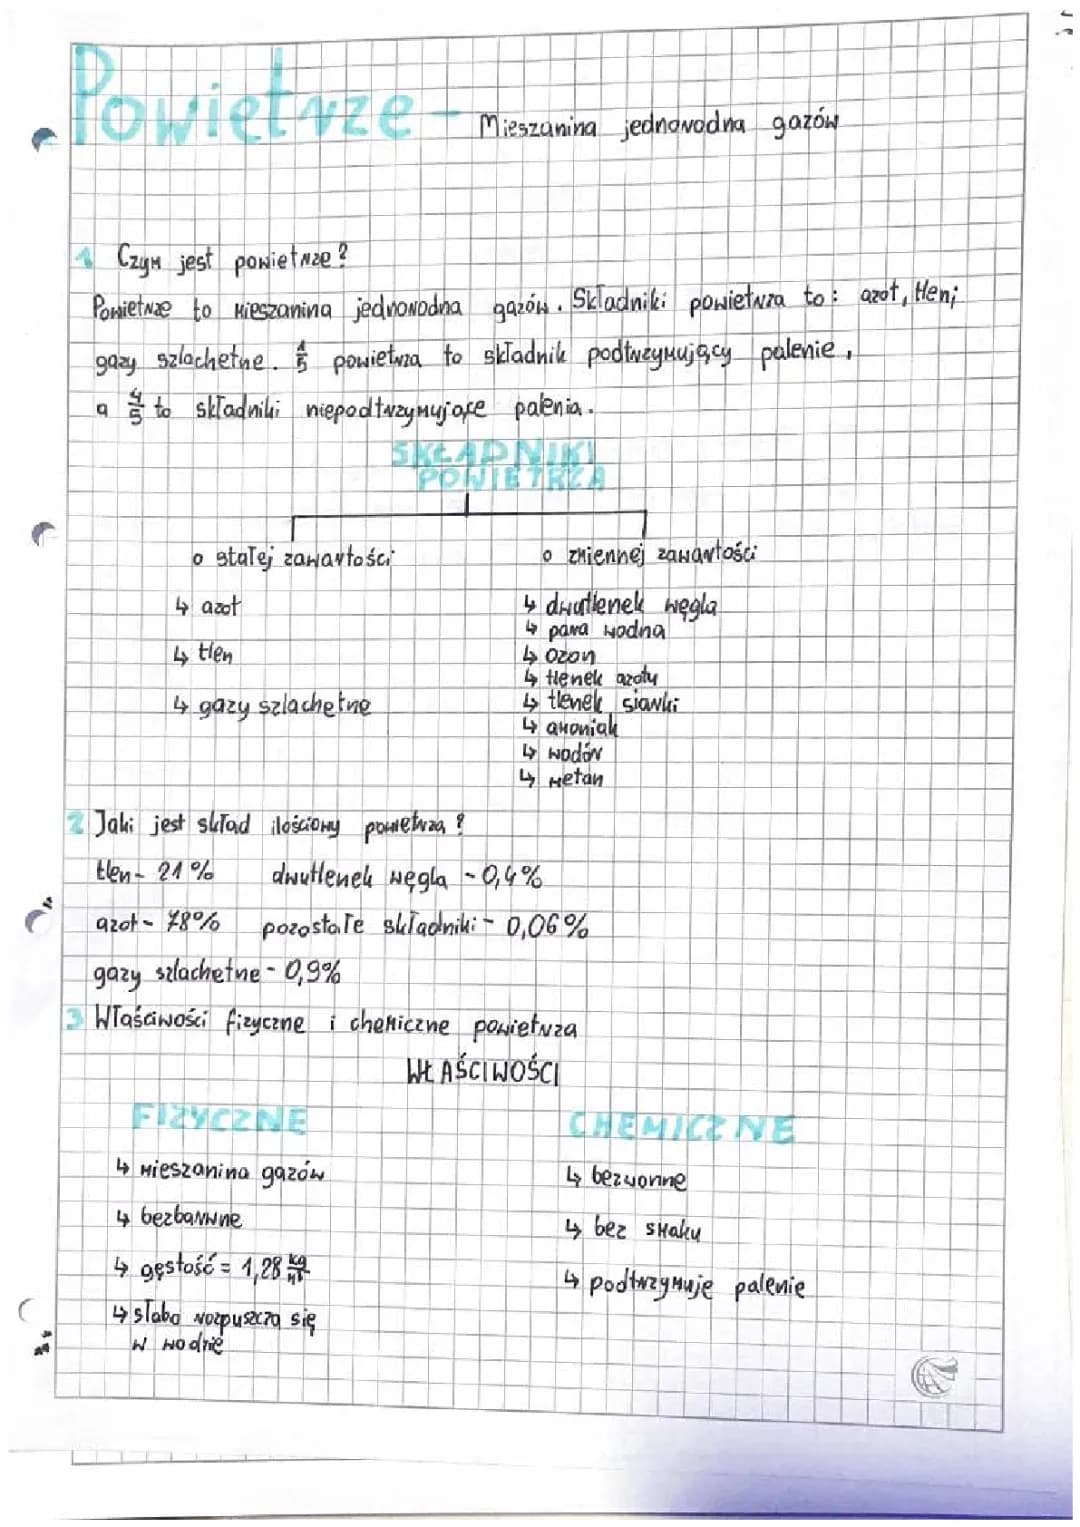 Powietrze - Mieszanina jednorodna gazów
1 Czym jest powietrze?
Powietrze to mieszanina jednorodna gazów. Składniki powietrza to: azot, tlen i
gazy szlachetne. 1/5 powietrza to składnik podtrzymujący palenie,
a 4/5 to składniki niepodtrzymujące palenia.
SKŁADNIKI
POWIETRZA
o stałej zawartości
o zmiennej zawartości
↳ azot
↳ tlen
↳ gazy szlachetne
↳ dwutlenek węgla
↳ para wodna
↳ ozon
↳ tlenek azotu
↳ tlenek siarki
↳ amoniak
↳ wodór
↳ metan
2 Jaki jest skład ilościowy powietrza?
tlen - 21% dwutlenek węgla - 0,4%
azot - 78% pozostałe składniki - 0,06%
gazy szlachetne - 0,9%
3 Właściwości fizyczne i chemiczne powietrza
WŁAŚCIWOŚCI
FIZYCZNE
↳ mieszanina gazów
↳ bezbarwne
↳ gęstość = 1,28 kg/m³
↳ słabo rozpuszcza się
w wodzie
CHEMICZNE
↳ bezwonne
↳ bez smaku
↳ podtrzymuje palenie